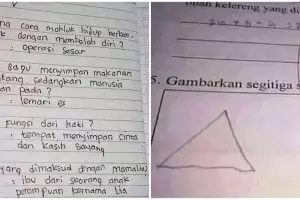 cara mahluk hidup berkem
k dengan membelah diri ?
: operasi sesar
Sapu menyimpan makanan
tang sedangkan manusia
an pada ?
: lemari es
fungsi dari hati ?
: tempat menyimpan cinta
dan kasih sayang
yang dimaksud dengan mamalia
: Ibu dari seorang anak
perempuan bernama Lia
kelereng yang di
5. Gambarkan segitiga s